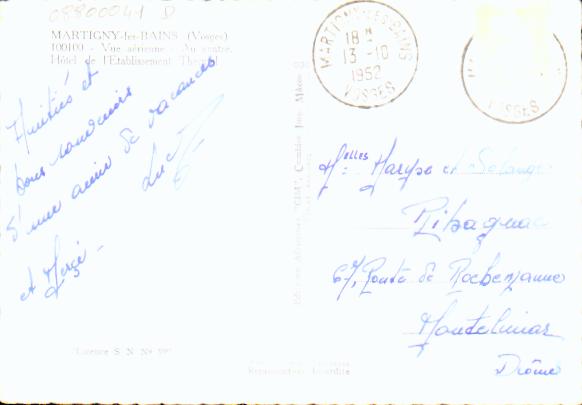 08800041 D
MARTIGNY-les-BAINS (Vosges)
100100 - Vue aérienne - Au centre,
Hôtel de l'Etablissement Thermal
Amitiés et
bons souvenirs
d'une amie de vacances
Luc
et Merci -
"Licence S. N. No
MARTIGNY-LES-BAINS
18 H
13-10
1952
VOSGES
VOSGES
Combier Imp. Mâcon
"CIM"
Melles Maryse et Solange
Ribagnac
67, Route de Rochemaure
Montélimar
Drôme
Reproduction Interdite